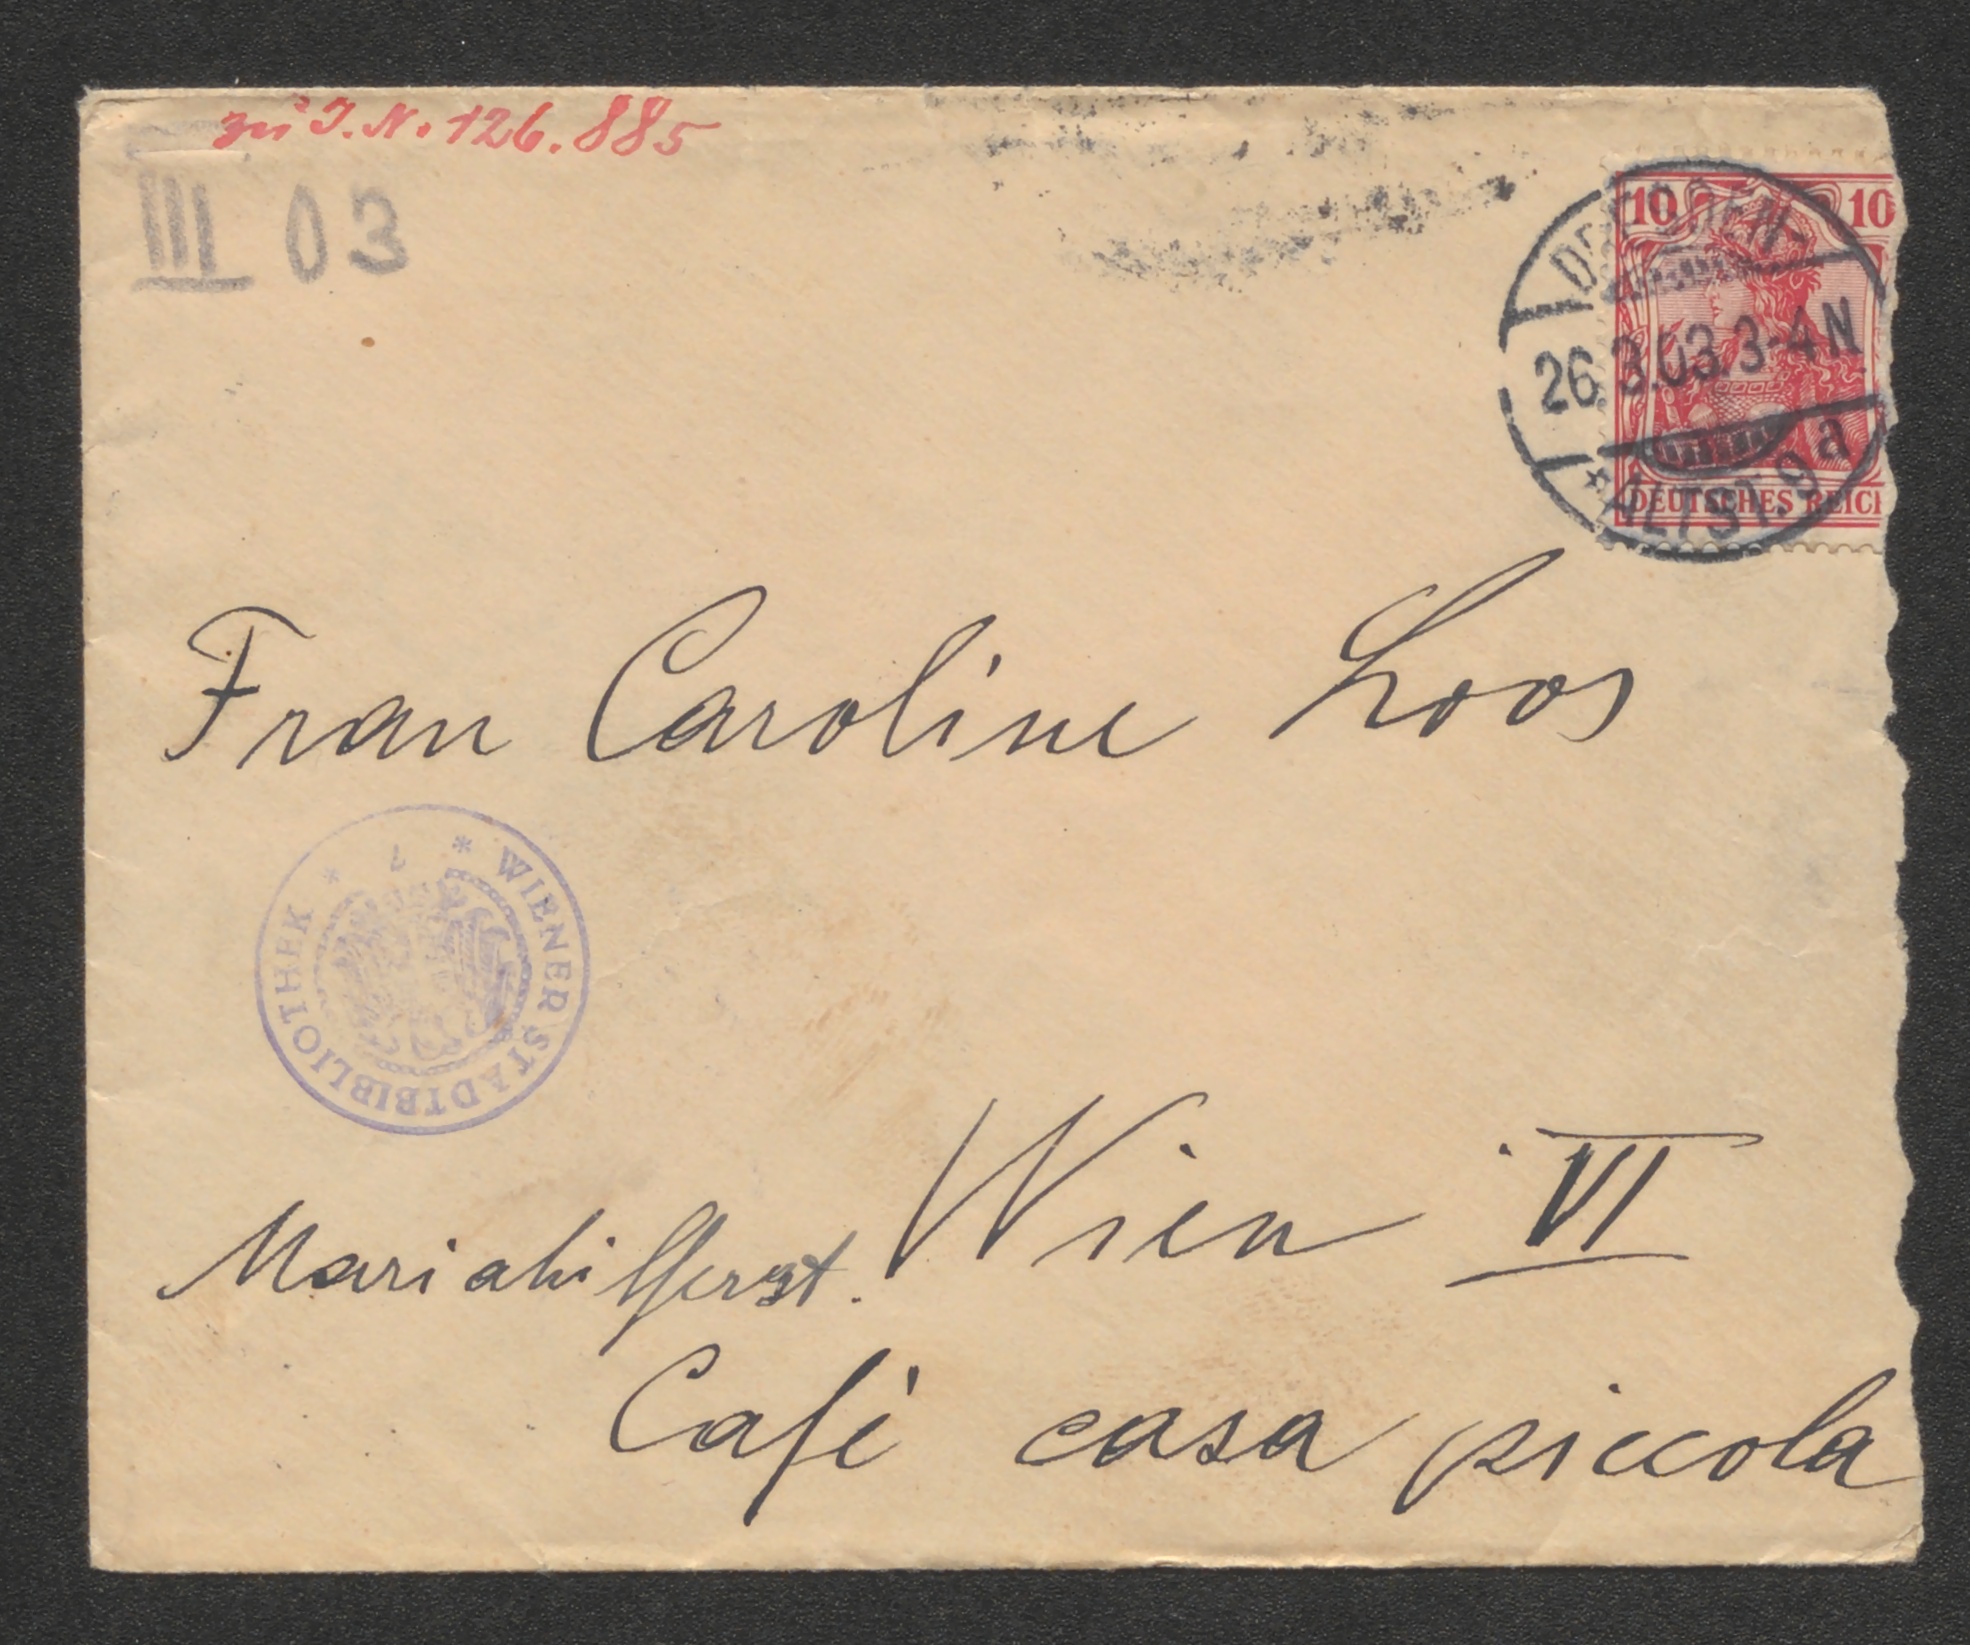 zu I.N. 126.885
III 03
10 10
DRESDEN-
26.3.03.3-4N
*ALTST.9 a
DEUTSCHES REICH
Frau Caroline Loos
* WIENER STADTBIBLIOTHEK *
Wien VI
Mariahilferst.
Café casa piccola